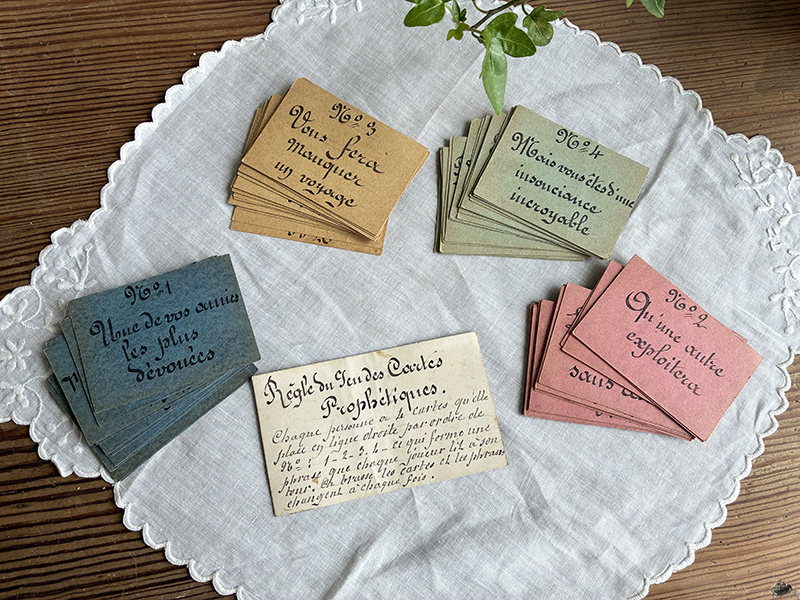 No 3
Vous fera
Manquer
un voyage
No 4
Mais vous êtes d'une
insouciance
incroyable
No 1
Une de vos amies
les plus
dévouées
No 2
Qu'une autre
exploitera
sans
Règle du Jeu des Cartes
Prophétiques.
Chaque personne a 4 cartes qu'elle
place en ligne droite par ordre de
Nos: 1-2-3-4- ce qui forme une
phrase que chaque joueur lit à son
tour. On brasse les cartes et les phrases
changent à chaque fois.